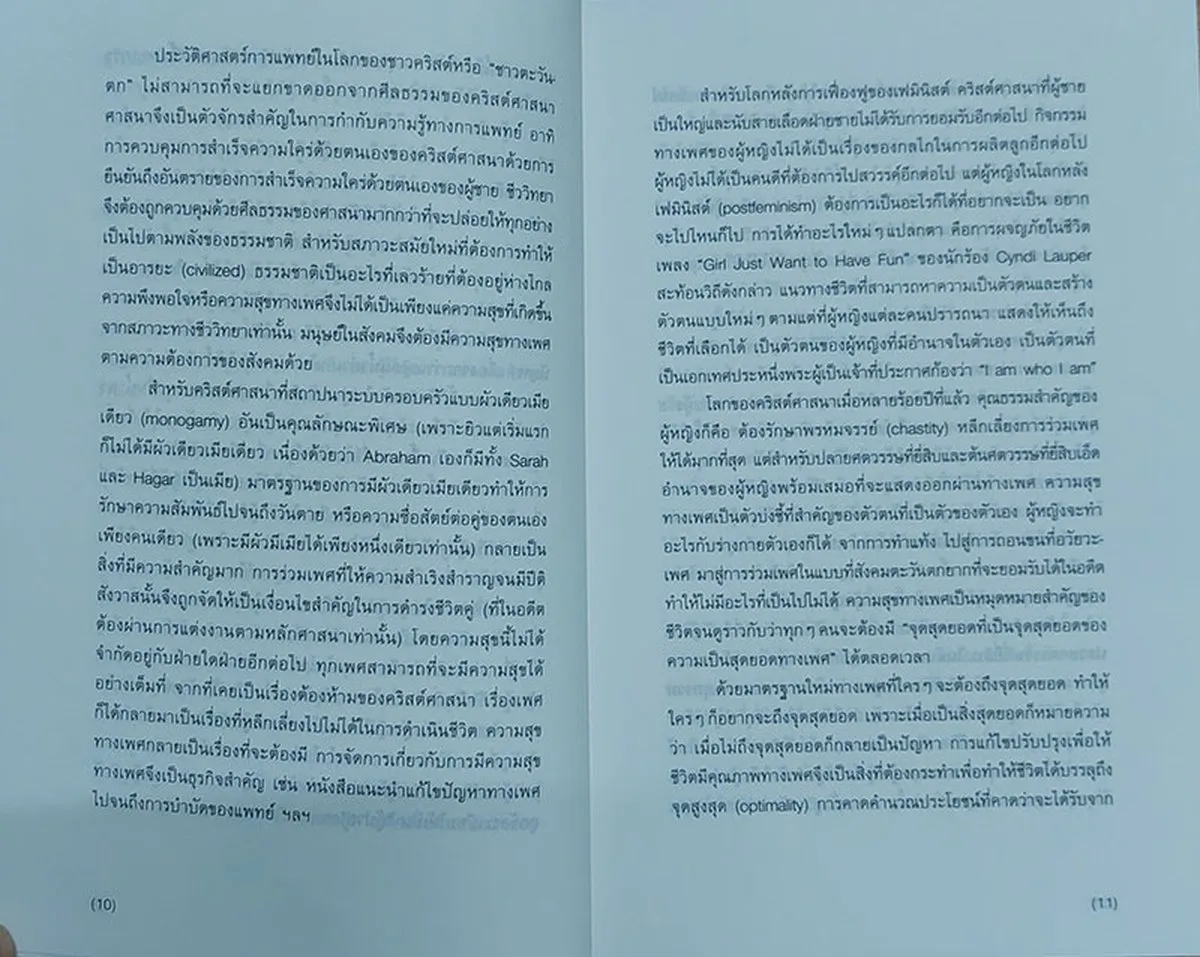 ประวัติศาสตร์การแพทย์ในโลกของชาวคริสต์หรือ "ชาวตะวัน-
ตก" ไม่สามารถที่จะแยกขาดออกจากศีลธรรมของคริสต์ศาสนา
ศาสนาจึงเป็นตัวจักรสำคัญในการกำกับความรู้ทางการแพทย์ อาทิ
การควบคุมการสำเร็จความใคร่ด้วยตนเองของคริสต์ศาสนาด้วยการ
ยืนยันถึงอันตรายของการสำเร็จความใคร่ด้วยตนเองของผู้ชาย ชีววิทยา
จึงต้องถูกควบคุมด้วยศีลธรรมของศาสนามากกว่าที่จะปล่อยให้ทุกอย่าง
เป็นไปตามพลังของธรรมชาติ สำหรับสภาวะสมัยใหม่ที่ต้องการทำให้
เป็นอารยะ (civilized) ธรรมชาติเป็นอะไรที่เลวร้ายที่ต้องอยู่ห่างไกล
ความพึงพอใจหรือความสุขทางเพศจึงไม่ได้เป็นเพียงแค่ความสุขที่เกิดขึ้น
จากสภาวะทางชีววิทยาเท่านั้น มนุษย์ในสังคมจึงต้องมีความสุขทางเพศ
ตามความต้องการของสังคมด้วย
สำหรับคริสต์ศาสนาที่สถาปนาระบบครอบครัวแบบผัวเดียวเมีย
เดียว (monogamy) อันเป็นคุณลักษณะพิเศษ (เพราะยิวแต่เริ่มแรก
ก็ไม่ได้มีผัวเดียวเมียเดียว เนื่องด้วยว่า Abraham เองก็มีทั้ง Sarah
และ Hagar เป็นเมีย) มาตรฐานของการมีผัวเดียวเมียเดียวทำให้การ
รักษาความสัมพันธ์ไปจนถึงวันตาย หรือความซื่อสัตย์ต่อคู่ของตนเอง
เพียงคนเดียว (เพราะมีผัวมีเมียได้เพียงหนึ่งเดียวเท่านั้น) กลายเป็น
สิ่งที่มีความสำคัญมาก การร่วมเพศที่ให้ความสำเริงสำราญจนมีปีติ
สังวาสนั้นจึงถูกจัดให้เป็นเงื่อนไขสำคัญในการดำรงชีวิตคู่ (ที่ในอดีต
ต้องผ่านการแต่งงานตามหลักศาสนาเท่านั้น) โดยความสุขนี้ไม่ได้
จำกัดอยู่กับฝ่ายใดฝ่ายอีกต่อไป ทุกเพศสามารถที่จะมีความสุขได้
อย่างเต็มที่ จากที่เคยเป็นเรื่องต้องห้ามของคริสต์ศาสนา เรื่องเพศ
ก็ได้กลายมาเป็นเรื่องที่หลีกเลี่ยงไปไม่ได้ในการดำเนินชีวิต ความสุข
ทางเพศกลายเป็นเรื่องที่จะต้องมี การจัดการเกี่ยวกับการมีความสุข
ทางเพศจึงเป็นธุรกิจสำคัญ เช่น หนังสือแนะนำแก้ไขปัญหาทางเพศ
ไปจนถึงการบำบัดของแพทย์ ฯลฯ
(10)
สำหรับโลกหลังการเฟื่องฟูของเฟมินิสต์ คริสต์ศาสนาที่ผู้ชาย
เป็นใหญ่และนับสายเลือดฝ่ายชายไม่ได้รับการยอมรับอีกต่อไป กิจกรรม
ทางเพศของผู้หญิงไม่ได้เป็นเรื่องของกลไกในการผลิตลูกอีกต่อไป
ผู้หญิงไม่ได้เป็นคนดีที่ต้องการไปสวรรค์อีกต่อไป แต่ผู้หญิงในโลกหลัง
เฟมินิสต์ (postfeminism) ต้องการเป็นอะไรก็ได้ที่อยากจะเป็น อยาก
จะไปไหนก็ไป การได้ทำอะไรใหม่ๆ แปลกตา คือการผจญภัยในชีวิต
เพลง "Girl Just Want to Have Fun" ของนักร้อง Cyndi Lauper
สะท้อนวิถีดังกล่าว แนวทางชีวิตที่สามารถหาความเป็นตัวตนและสร้าง
ตัวตนแบบใหม่ๆ ตามแต่ที่ผู้หญิงแต่ละคนปรารถนา แสดงให้เห็นถึง
ชีวิตที่เลือกได้ เป็นตัวตนของผู้หญิงที่มีอำนาจในตัวเอง เป็นตัวตนที่
เป็นเอกเทศประหนึ่งพระผู้เป็นเจ้าที่ประกาศก้องว่า "I am who I am"
โลกของคริสต์ศาสนาเมื่อหลายร้อยปีที่แล้ว คุณธรรมสำคัญของ
ผู้หญิงก็คือ ต้องรักษาพรหมจรรย์ (chastity) หลีกเลี่ยงการร่วมเพศ
ให้ได้มากที่สุด แต่สำหรับปลายศตวรรษที่ยี่สิบและต้นศตวรรษที่ยี่สิบเอ็ด
อำนาจของผู้หญิงพร้อมเสมอที่จะแสดงออกผ่านทางเพศ ความสุข
ทางเพศเป็นตัวบ่งชี้ที่สำคัญของตัวตนที่เป็นตัวของตัวเอง ผู้หญิงจะทำ
อะไรกับร่างกายตัวเองก็ได้ จากการทำแท้ง ไปสู่การถอนขนที่อวัยวะ-
เพศ มาสู่การร่วมเพศในแบบที่สังคมตะวันตกยากที่จะยอมรับได้ในอดีต
ทำให้ไม่มีอะไรที่เป็นไปไม่ได้ ความสุขทางเพศเป็นหมุดหมายสำคัญของ
ชีวิตจนดูราวกับว่าทุกๆ คนจะต้องมี "จุดสุดยอดที่เป็นจุดสุดยอดของ
ความเป็นสุดยอดทางเพศ" ได้ตลอดเวลา
ด้วยมาตรฐานใหม่ทางเพศที่ใครๆ จะต้องถึงจุดสุดยอด ทำให้
ใครๆ ก็อยากจะถึงจุดสุดยอด เพราะเมื่อเป็นสิ่งสุดยอดก็หมายความ
ว่า เมื่อไม่ถึงจุดสุดยอดก็กลายเป็นปัญหา การแก้ไขปรับปรุงเพื่อให้
ชีวิตมีคุณภาพทางเพศจึงเป็นสิ่งที่ต้องกระทำเพื่อทำให้ชีวิตได้บรรลุถึง
จุดสูงสุด (optimality) การคาดคำนวณประโยชน์ที่คาดว่าจะได้รับจาก
(11)